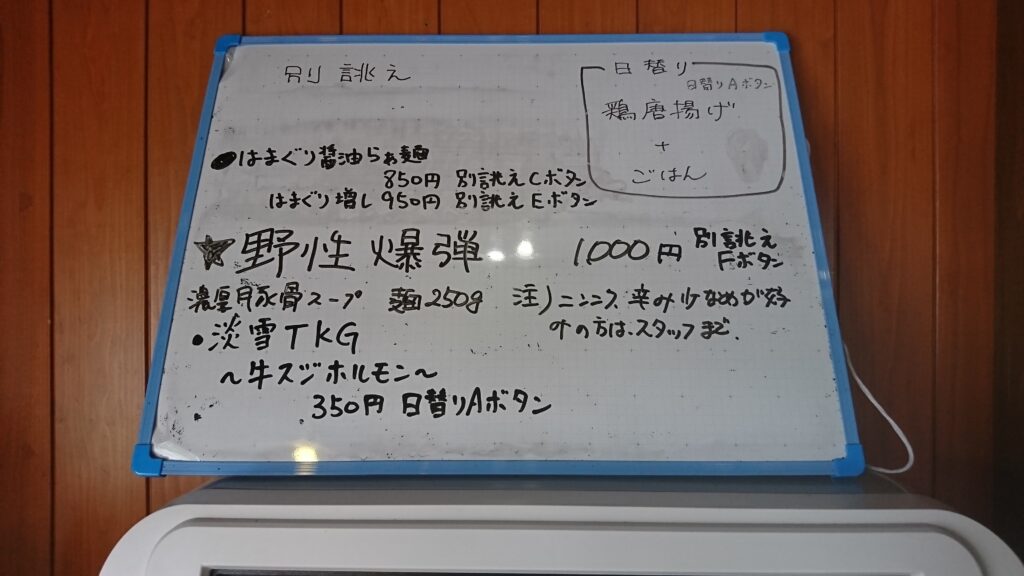 別誂え
日替り
日替りAボタン
鶏唐揚げ
+
ごはん
●はまぐり醤油らぁ麺
850円 別誂えCボタン
はまぐり増し 950円 別誂えEボタン
★野性爆弾 1000円 別誂え
Fボタン
濃厚豚骨スープ 麺250g 注)ニンニク、辛み少なめが好
みの方は、スタッフまで
・淡雪TKG
~牛スジホルモン~
350円 日替りAボタン